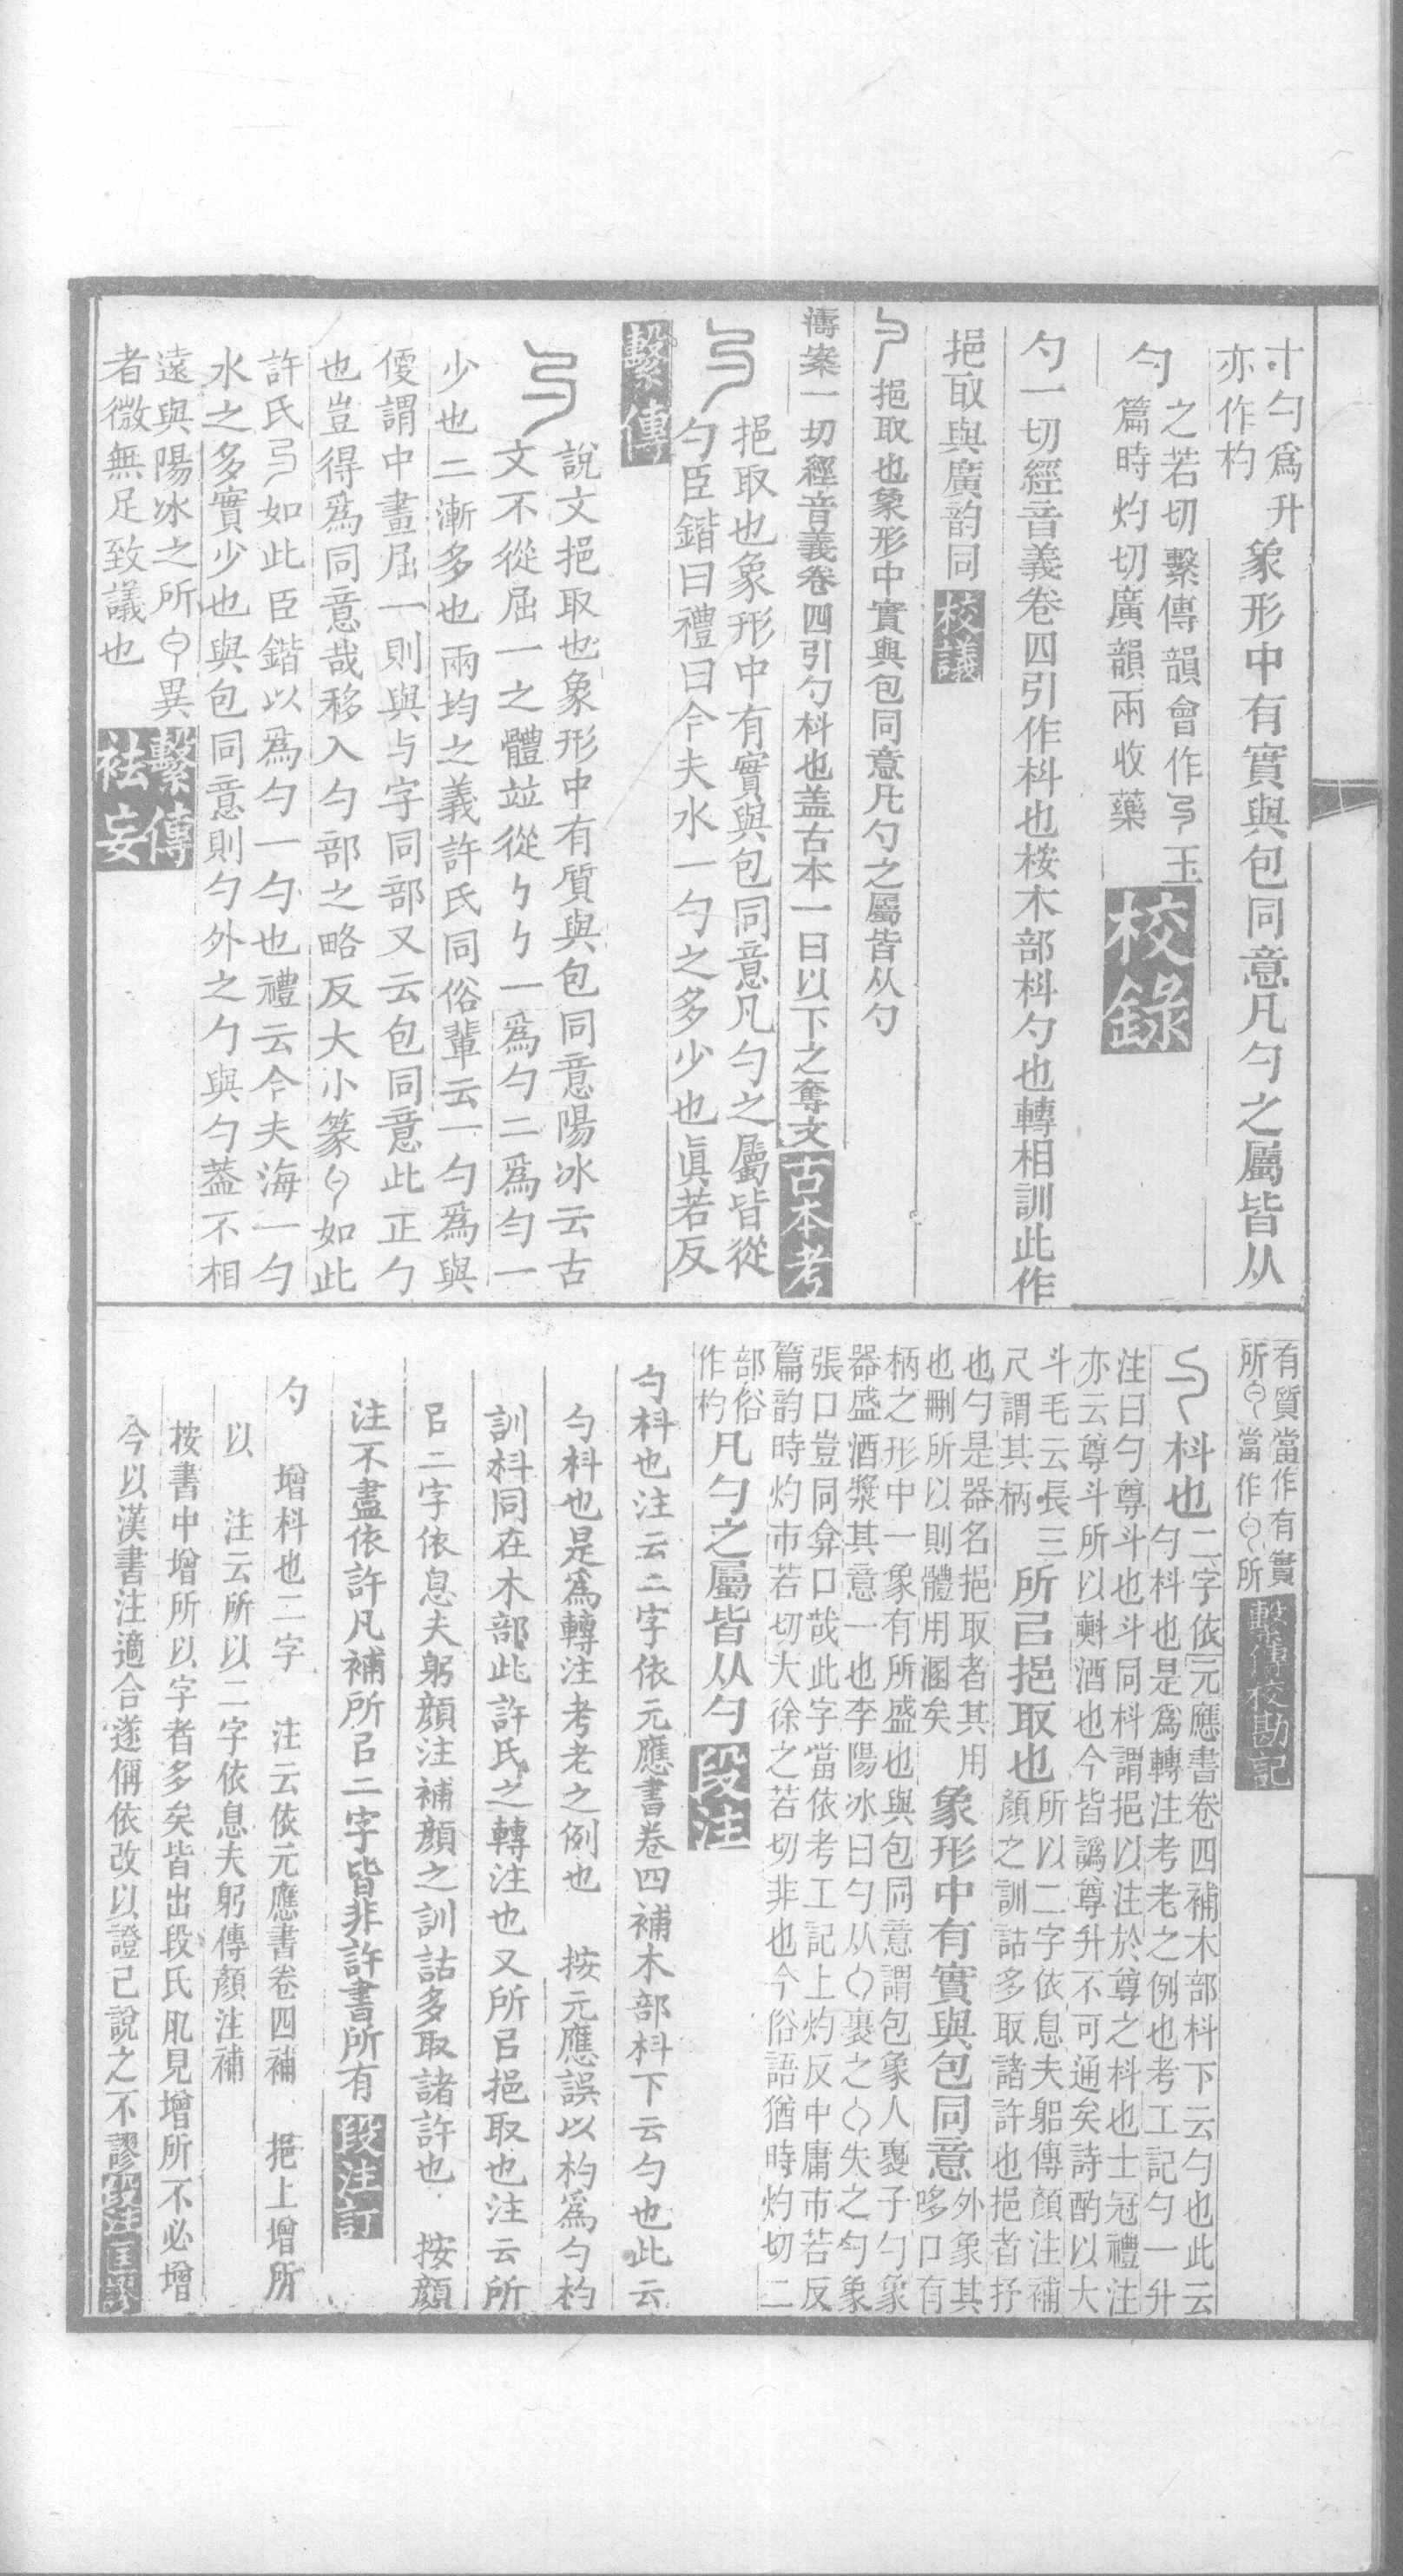 寸勺爲升
亦作杓
象形中有實與包同意凡勺之屬皆从
勺
之若切繫傳韻會作𠃚玉
篇時灼切廣韻兩收藥
校錄
勺一切經音義卷四引作枓也桉木部枓勺也轉相訓此作
挹取與廣韵同
校議
挹取也象形中實與包同意凡勺之屬皆从勺
濤案一切經音義卷四引勺枓也盖古本一曰以下之奪文
古本考
挹取也象形中有實與包同意凡勺之屬皆從
勺臣鍇曰禮曰今夫水一勺之多少也眞若反
繫傳
說文挹取也象形中有質與包同意陽冰云古
文不從屈一之體竝從勹勹一爲勺二爲勻一
少也二漸多也兩均之義許氏同俗輩云一勺爲與
㑓謂中畫屈一則與与字同部又云包同意此正勹
也豈得爲同意哉移入勹部之略反大小篆如此
許氏如此臣鍇以爲勺一勺也禮云今夫海一勺
水之多實少也與包同意則勺外之勹與勺葢不相
遠與陽冰之所異
者微無足致議也
繫傳
袪妄
有質當作有實
所當作所
繫傳校勘記
枓也
二字依元應書卷四補木部枓下云勺也此云
勺枓也是爲轉注考老之例也考工記勺一升
注曰勺尊斗也斗同枓謂挹以注於尊之枓也士冠禮注
亦云尊斗所以㪺酒也今皆譌尊升不可通矣詩酌以大
斗毛云長三
尺謂其柄
所㠯挹取也
所以二字依息夫躬傳顔注補
顏之訓詁多取諸許也挹者抒
也勺是器名挹取者其用
也刪所以則體用溷矣
象形中有實與包同意
外象其
哆口有
柄之形中一象有所盛也與包同意謂包象人裹子勺象
器盛酒漿其意一也李陽冰曰勺从勹裹之勹失之勻象
張口豈同弇口哉此字當依考工記上灼反中庸市若反
篇韵時灼市若切大徐之若切非也今俗語猶時灼切二
部俗
作杓
凡勺之屬皆从勺
段注
勺枓也注云二字依元應書卷四補木部枓下云勺也此云
勺枓也是爲轉注考老之例也　按元應誤以杓爲勺杓
訓枓同在木部此許氏之轉注也又所㠯挹取也注云所
㠯二字依息夫躬顔注補顔之訓詁多取諸許也　按顔
注不盡依許凡補所㠯二字皆非許書所有
段注訂
勺　增枓也二字　注云依元應書卷四補　挹上增所
以　注云所以二字依息夫躬傳顏注補
按書中增所以字者多矣皆出段氏肊見增所不必增
今以漢書注適合遂偁依改以證己說之不謬
段注匡謬